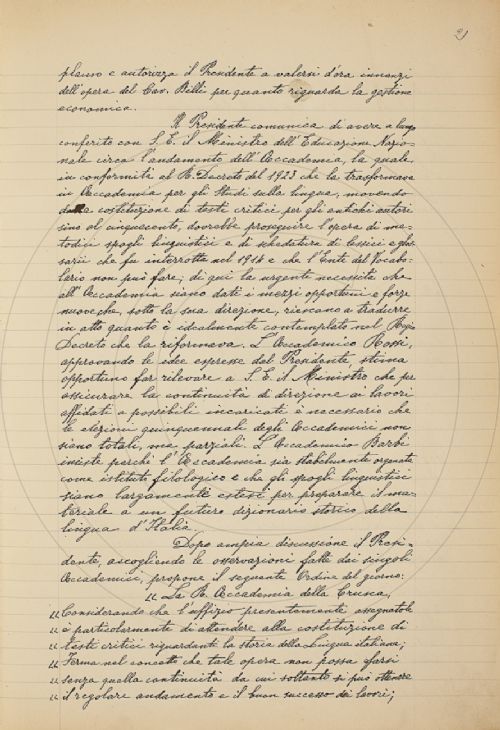 21
plauso e autorizza il Presidente a valersi d'ora innanzi
dell'opera del Cav. Billi per quanto riguarda la gestione
economica.
Il Presidente comunica di avere a lungo
conferito con S. E. il Ministro dell'Educazione Nazio-
nale circa l'andamento dell'Accademia, la quale,
in conformità al R. Decreto del 1923 che la trasformava
in Accademia per gli Studi sulla lingua, movendo
dalla costituzione di testi critici per gli antichi autori
sino al cinquecento, dovrebbe proseguire l'opera di me-
todici spogli linguistici e di schedatura di lessici e glos-
sarii che fu interrotta nel 1914 e che l'Ente del Vocabo-
lario non può fare; di qui la urgente necessità che
all'Accademia siano dati i mezzi opportuni e forze
nuove che, sotto la sua direzione, riescano a tradurre
in atto quanto è idealmente contemplato nel Regio
Decreto che la riformava. L'Accademico Rossi,
approvando le idee espresse dal Presidente stima
opportuno far rilevare a S. E. il Ministro che per
assicurare la continuità di direzione ai lavori
affidati a possibili incaricati è necessario che
le elezioni quinquennali degli Accademici non
siano totali, ma parziali. L'Accademico Barbi
insiste perchè l'Accademia sia stabilmente organata
come istituto filologico e che gli spogli linguistici
siano largamente estesi per preparare il ma-
teriale a un futuro dizionario storico della
lingua d'Italia.
Dopo ampia discussione il Presi-
dente, accogliendo le osservazioni fatte dai singoli
Accademici, propone il seguente Ordine del giorno:
" La R. Accademia della Crusca,
" Considerando che l'uffizio presentemente assegnatole
" è particolarmente di attendere alla costituzione di
" testi critici riguardanti la storia della Lingua italiana;
" Ferma nel concetto che tale opera non possa farsi
" senza quella continuità da cui soltanto si può ottenere
" il regolare andamento e il buon successo dei lavori;